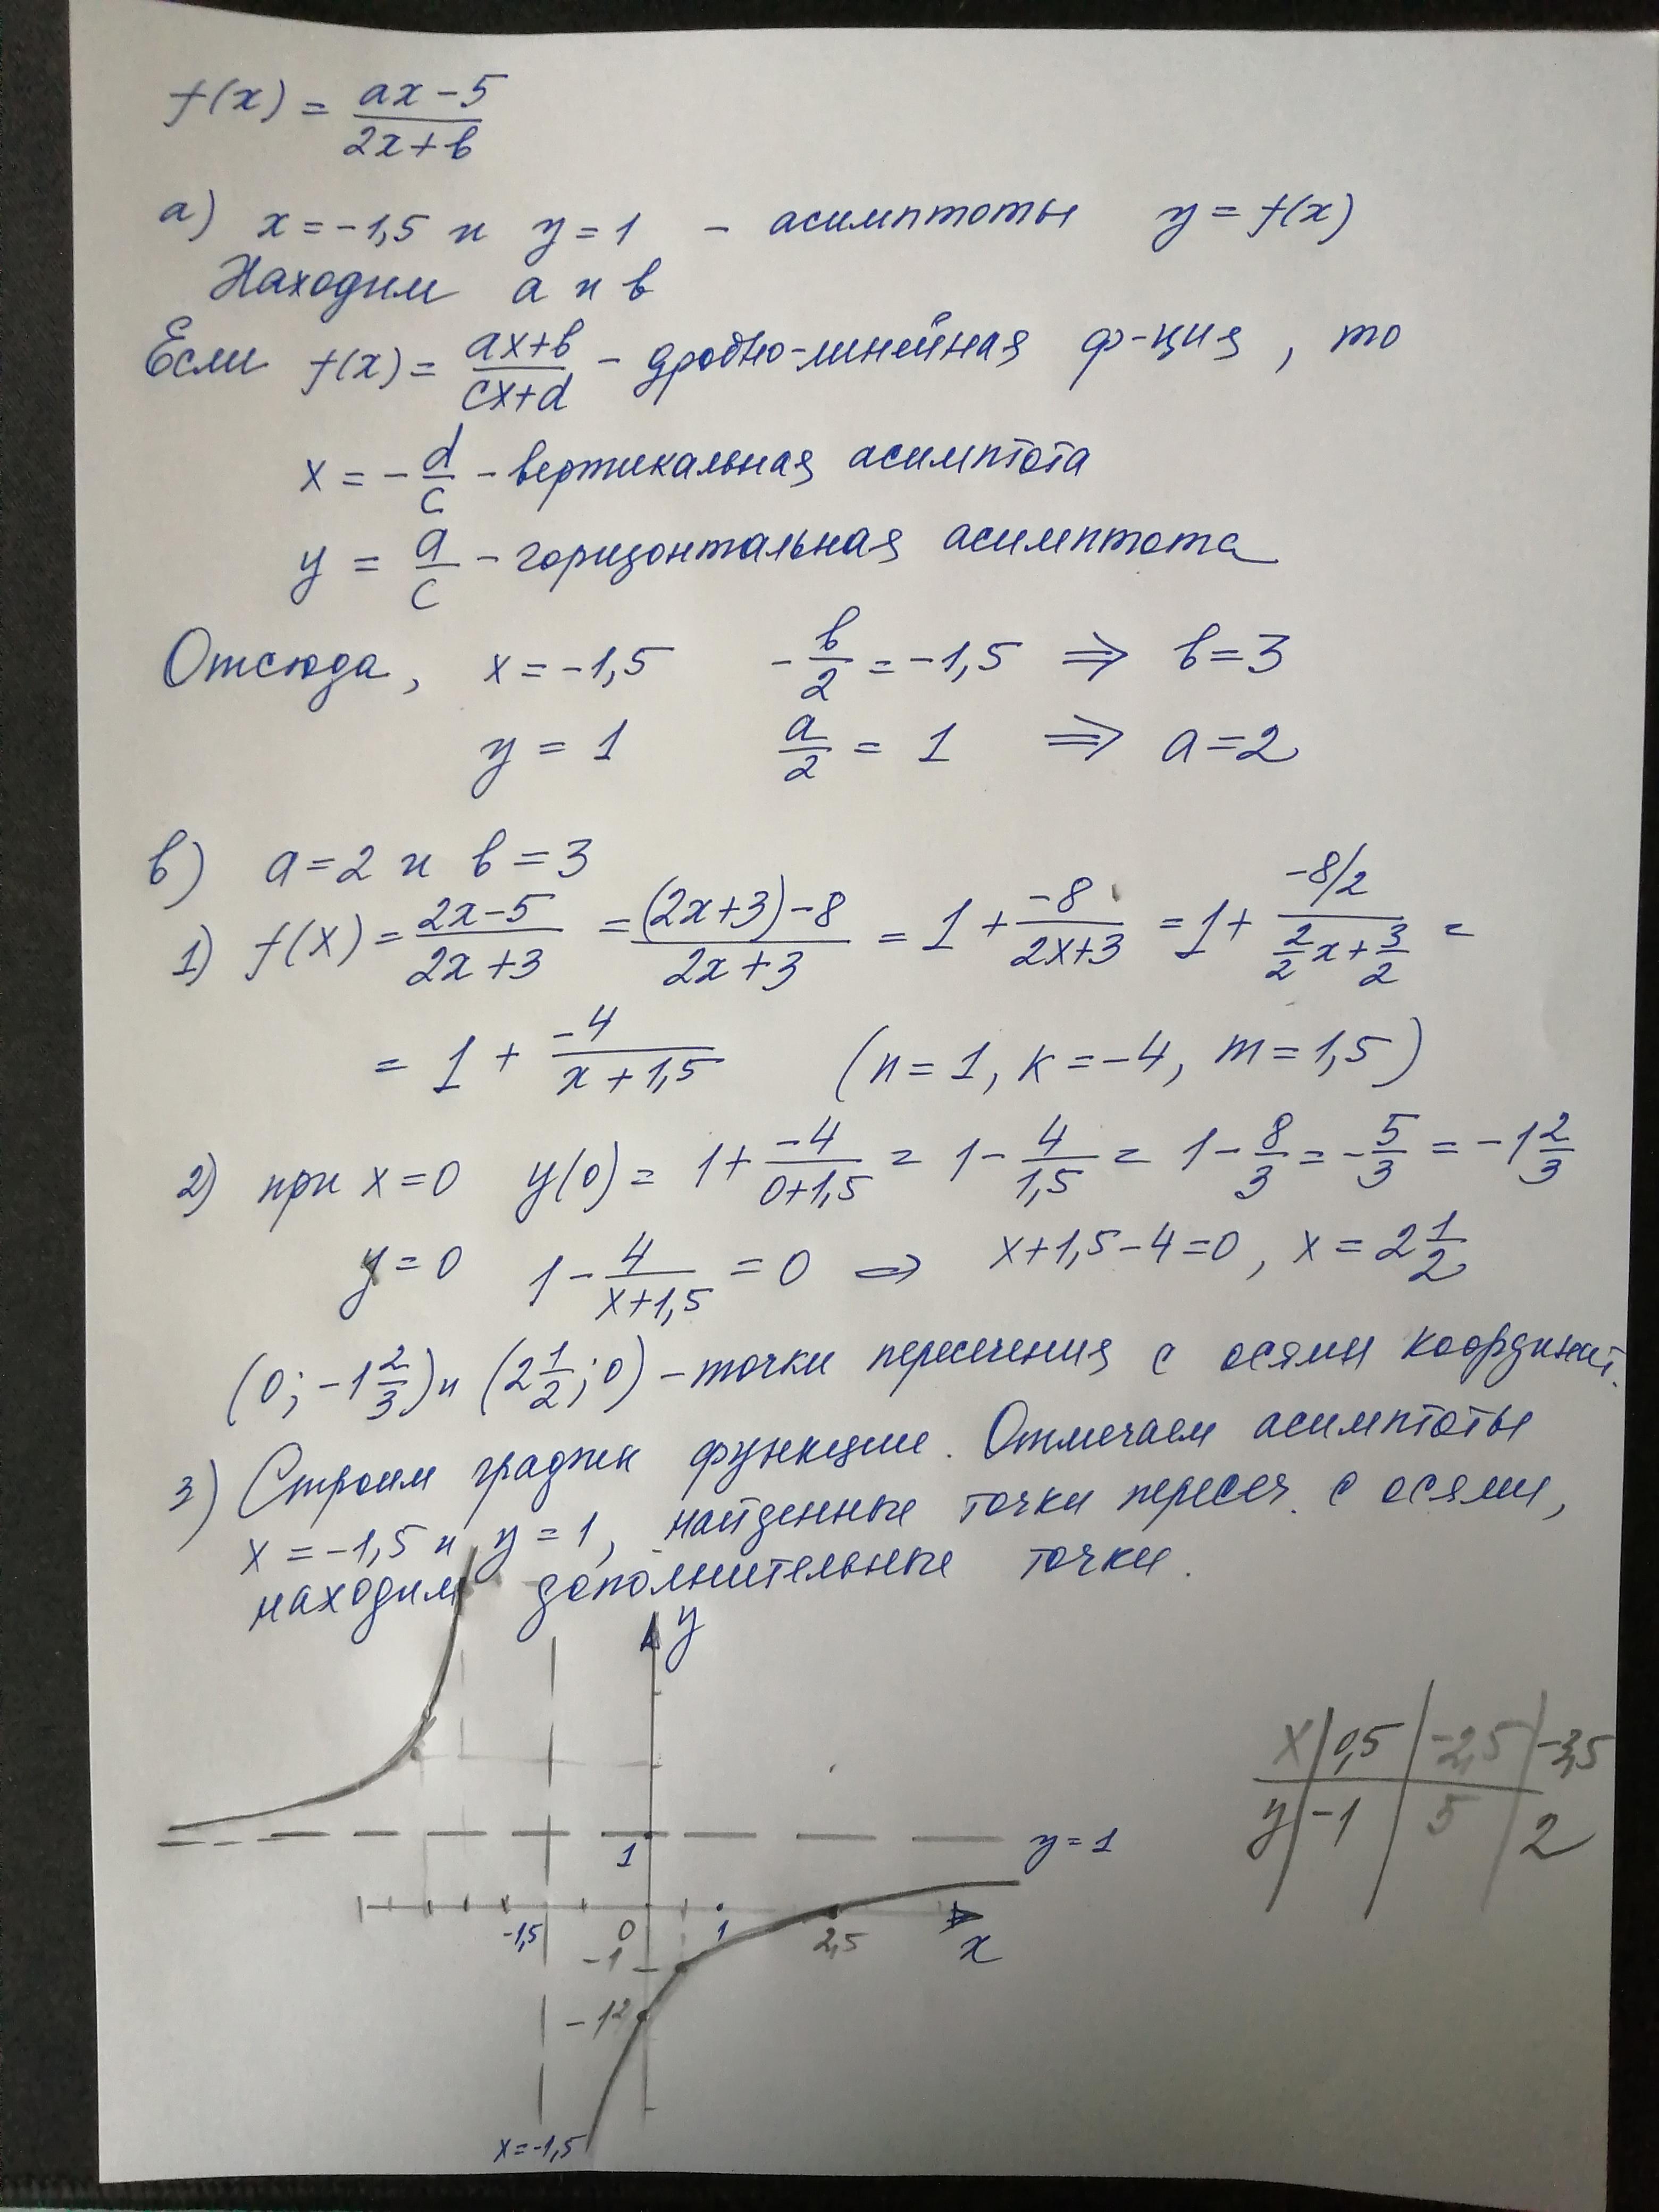 f(x) = (ax-5)/(2x+в)
а) x = -1,5 и y = 1 - асимптоты y = f(x)
Находим а и в
Если f(x) = (ax+b)/(cx+d) - дробно-линейная ф-ция, то
x = -d/c - вертикальная асимптота
y = a/c - горизонтальная асимптота
Отсюда, x = -1,5 -в/2 = -1,5 ⇒ в = 3
y = 1 a/2 = 1 ⇒ a = 2
в) a = 2 и в = 3
1) f(x) = (2x-5)/(2x+3) = ((2x+3)-8)/(2x+3) = 1 + -8/(2x+3) = 1 + (-8/2)/(2/2 x + 3/2) =
= 1 + -4/(x+1,5) (n = 1, k = -4, m = 1,5)
2) при x = 0 y(0) = 1 + -4/(0+1,5) = 1 - 4/1,5 = 1 - 8/3 = -5/3 = -1 2/3
y = 0 1 - 4/(x+1,5) = 0 ⇒ x+1,5-4=0, x = 2 1/2
(0; -1 2/3) и (2 1/2; 0) - точки пересечения с осями координат.
3) Строим график функции. Отмечаем асимптоты
x = -1,5 и y = 1, найденные точки пересеч. с осями,
находим дополнительные точки.
y
x | 0,5 | -2,5 | -3,5
y | -1 | 5 | 2
1
y = 1
-1,5 0 1 2,5 x
-1
x = -1,5